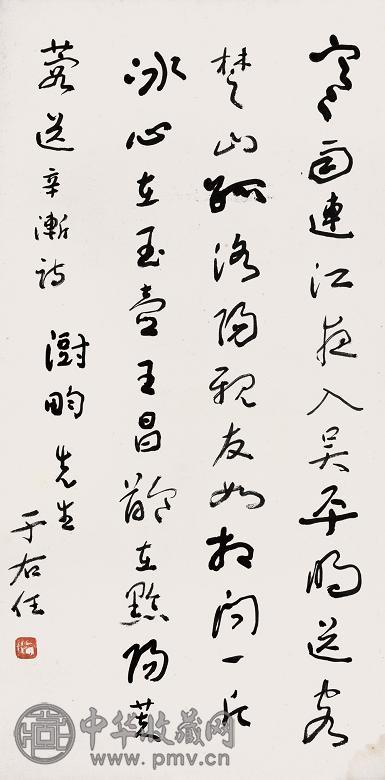 寒雨連江夜入吳平明送客
楚山孤洛陽親友如相問一片
冰心在玉壺王昌齡在黔陽芙
蓉送辛漸詩
澍畇先生
于右任
中华收藏网
www.pmv.cn